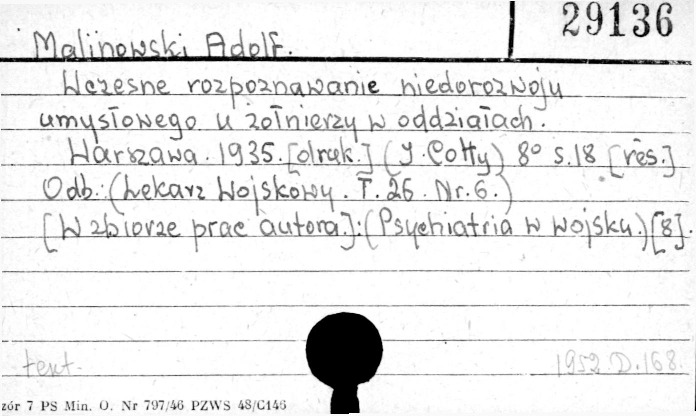 29136
Malinowski Adolf.
Wczesne rozpoznawanie niedorozwoju
umysłowego u żołnierzy w oddziałach.
Warszawa. 1935. [druk.] (J. Cotty) 8° s.18 [res.]
Odb.: (Lekarz Wojskowy. T. 26. Nr. 6.)
[W zbiorze prac autora.]: (Psychiatria w wojsku.) [8].
1952.D.168.
zór 7 PS Min. O. Nr 797/46 PZWS 48/C146